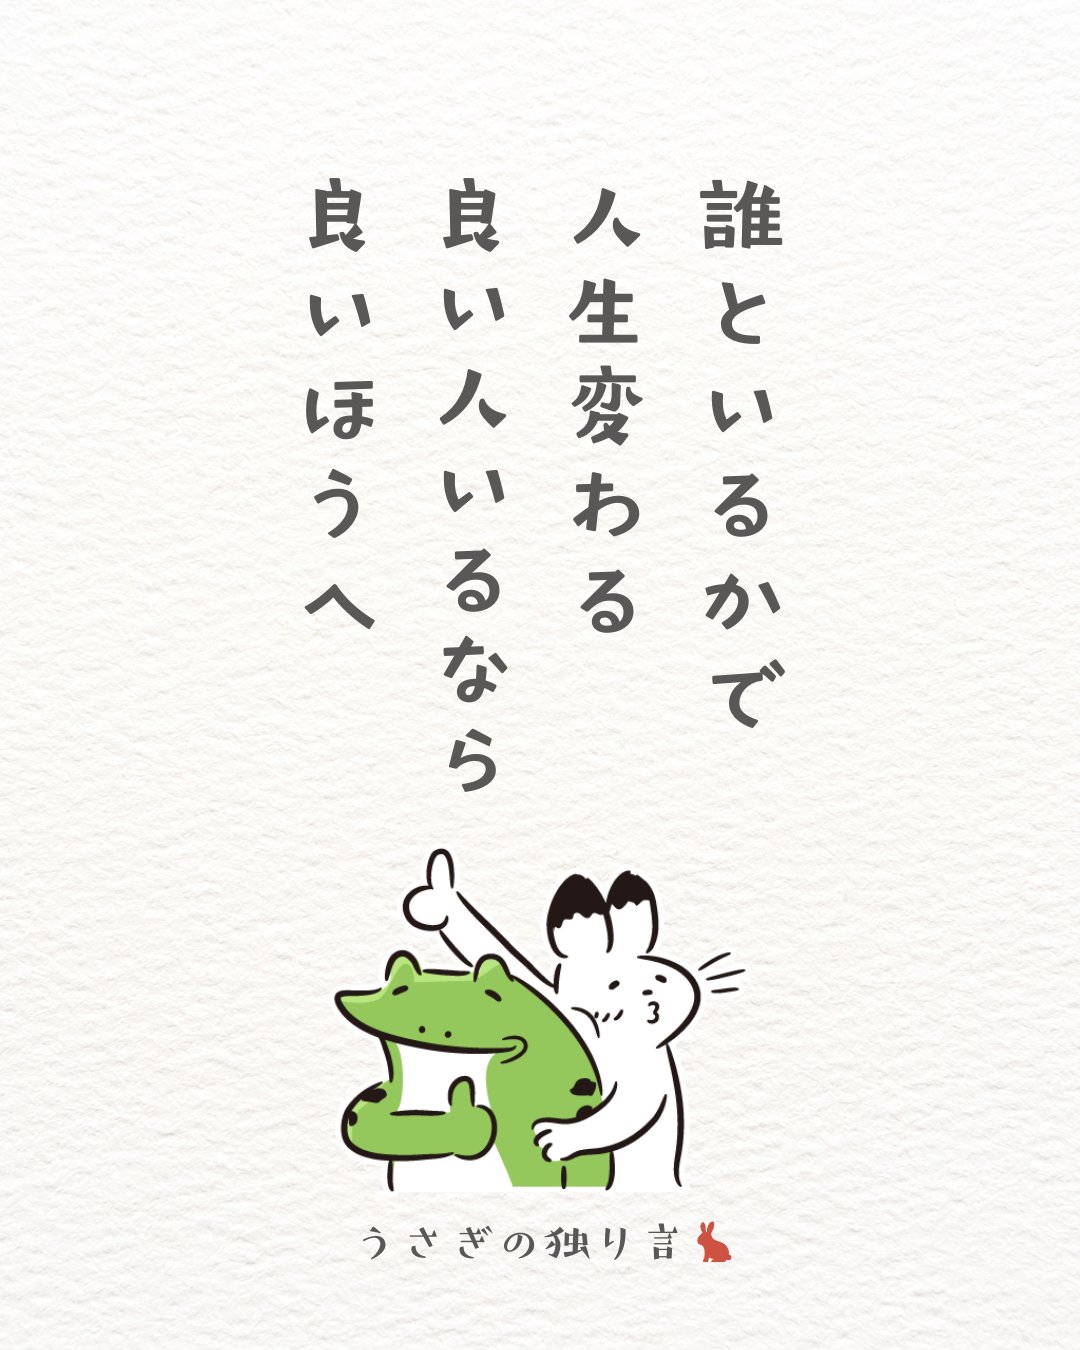 誰といるかで
人生変わる
良い人いるなら
良いほうへ
うさぎの独り言